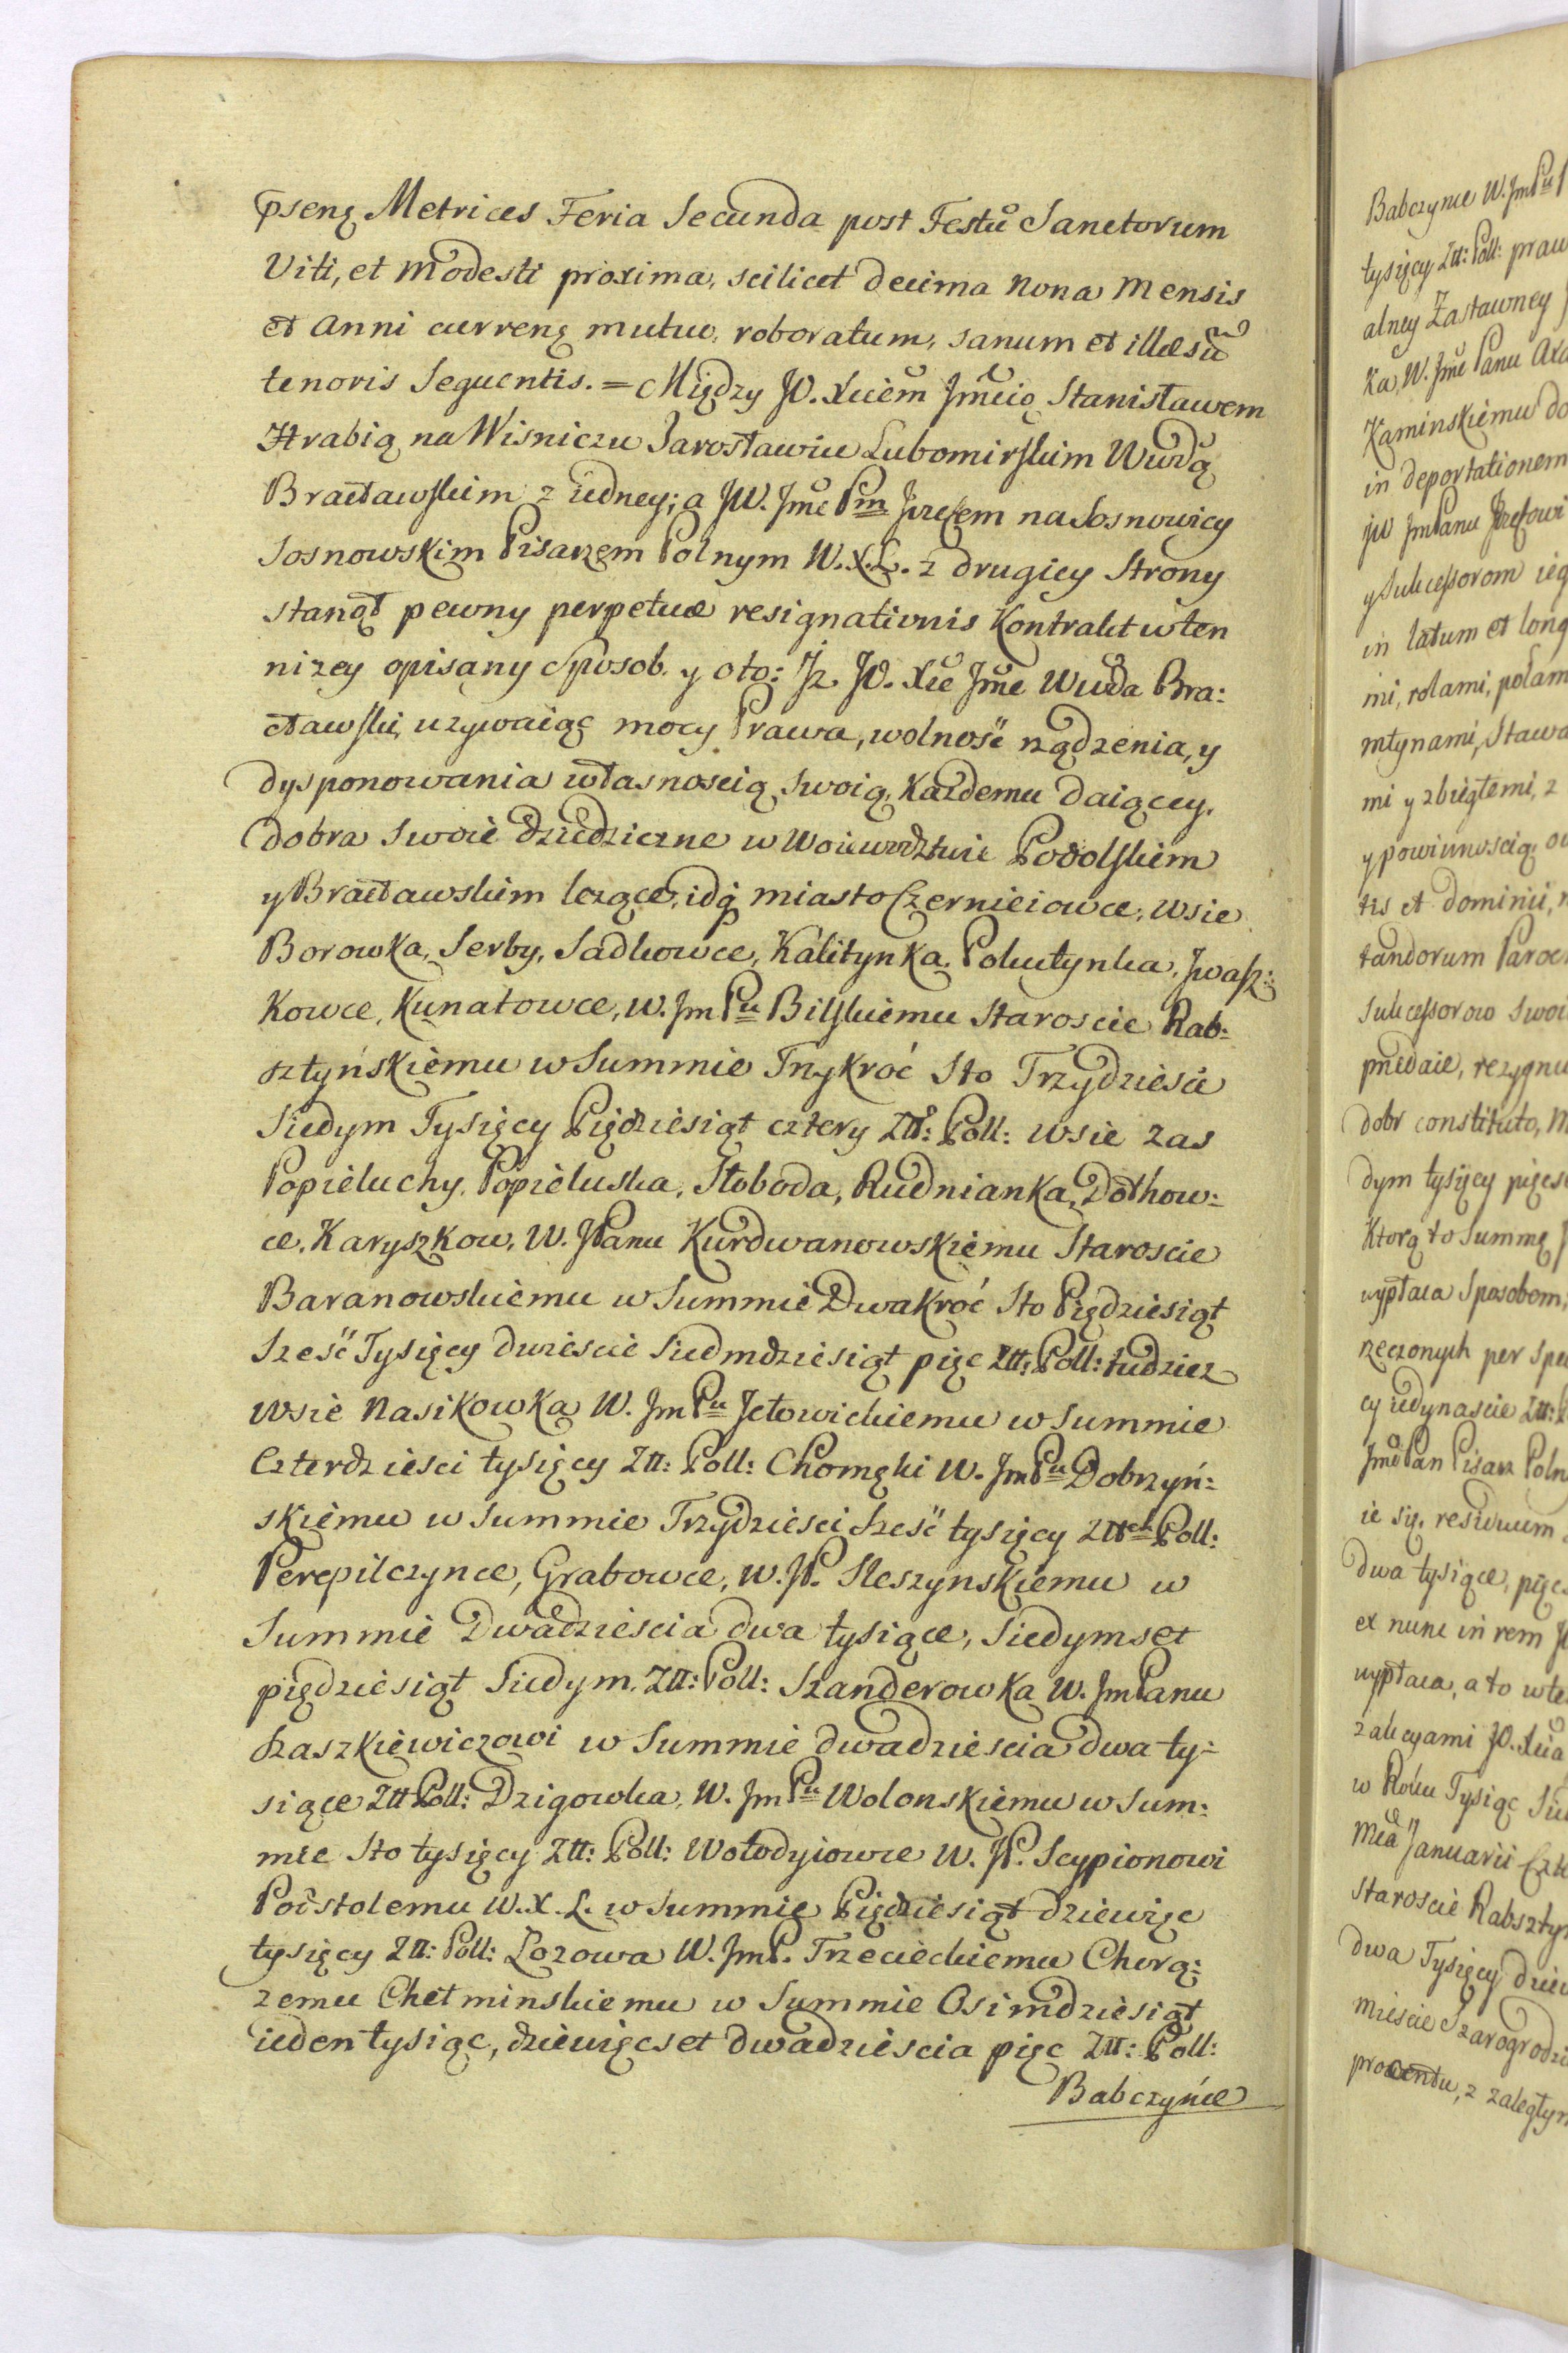 p̄senz Metrices Feria Secunda post Festū Sanctorum
Viti, et Modesti proxima, scilicet decima Nona Mensis
et Anni currenz mutuo, roboratum, sanum et illæsū
tenoris Sequentis. = Między JO. Xciem Jmcią Stanisławem
Hrabią na Wisniczu Jarosławiu Lubomirskim Wwdą
Bracławskim z iedney; a JW. Jmc Pm Jozefem na Sosnowicy
Sosnowskim Pisarzem Polnym W.X.L. z drugiey Strony
stanął pewny perpetuæ resignationis Kontrakt w ten
nizey opisany Sposob. y oto: Jz. JO. Xie Jmc Wwda Bra:
cławski, uzywaiąc mocy Prawa, wolność rządzenia, y
dysponowania własnoscią swoią, Kazdemu daiącey,
dobra swoie dziedziczne w Woiewodztwie Podolskiem
y Bracławskim lezące, idq̨ miasto Czernieiowce, Wsie
Borowka, Serby, Sadkowce, Kalitynka, Polutynka, Jwasz:
Kowce, Kunatowce, W. Jm Pu Bilskiemu Staroscie Rab:
sztyńskiemu w Summie Trzykroć Sto Trzydziescie
Siedym Tysięcy Pięcdziesiąt cztery Złł: Poll: wsie zas
Popieluchy, Popieluska, Słoboda, Rudnianka, Dołhow:
ce, Karyszkow, W. JPanu Kurdwanowskiemu Staroscie
Baranowskiemu w Summie Dwakroć Sto Pięcdziesiąt
Sześć Tysięcy dwiescie Siedmdziesiąt pięc Złł: Poll: tudziez
wsie Nasikowka W. Jm Pu Jełowickiemu w Summie
Czterdziesci tysięcy Złł: Poll: Chomęki W. Jm Pu Dobrzyń:
skiemu w Summie Trzydziesci Sześć tysięcy Złłch Poll:
Perepilczynce, Grabowce, W. JP. Sleszynskiemu w
Summie Dwadziescia dwa tysiące, Siedymset
pięcdziesiąt Siedym, Złł: Poll: Szanderowka W. JmPanu
Szaszkiewiczowi w Summie dwadziescia dwa ty:
siące Złł Poll: Dzigowka, W. Jm Pu Wolonskiemu w Sum:
mie Sto tysięcy Złł: Poll: Wołodyiowce W. JP. Scypionowi
Podstolemu W.X.L. w Summie Pięcdziesiąt dziewięc
tysięcy Złł: Poll: Lozowa W. JmP. Trzecieckiemu Chorą:
zemu Chełminskiemu w Summie Osimdziesiąt
ieden tysiąc, dziewięcset dwadziescia pięc Złł: Poll:
Babczyńce
Babczynce W. Jm Pu
tysięcy Złł: Poll: praw
alney Zastawney
Ka, W. Jmc Panu
Kaminskiemu do
in deportationem
JW JmPanu Jozefowi
y Sukcessorom ieg
in latum et long
mi, rolami, polam
młynami, Stawa
mi y zbiegłemi, z
y powinnoscią
tis et dominii,
tandorum Paroc
Sukcessorow swoi
przedaie, rezygnu
dobr constituto,
dym tysięcy pięcs
Ktorą to Summę
wypłaca Sposobem,
rzeczonych per Spe
cy iedynascie Złł:
Jmc Pan Pisarz Poln
ie się, residuum
dwa tysiące, pięcs
ex nunc in rem
wypłaca, a to w te
zakcyami JO. Xcia
w Roku Tysiąc Sie
Januarii Czte
Staroscie Rabsztyn
dwa Tysięcy dziew
miescie Szarogrodzi
procentu, z zaległym